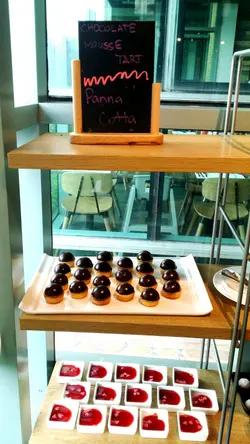 CHOCOLATE
MOUSSE
TART
Panna
Cotta